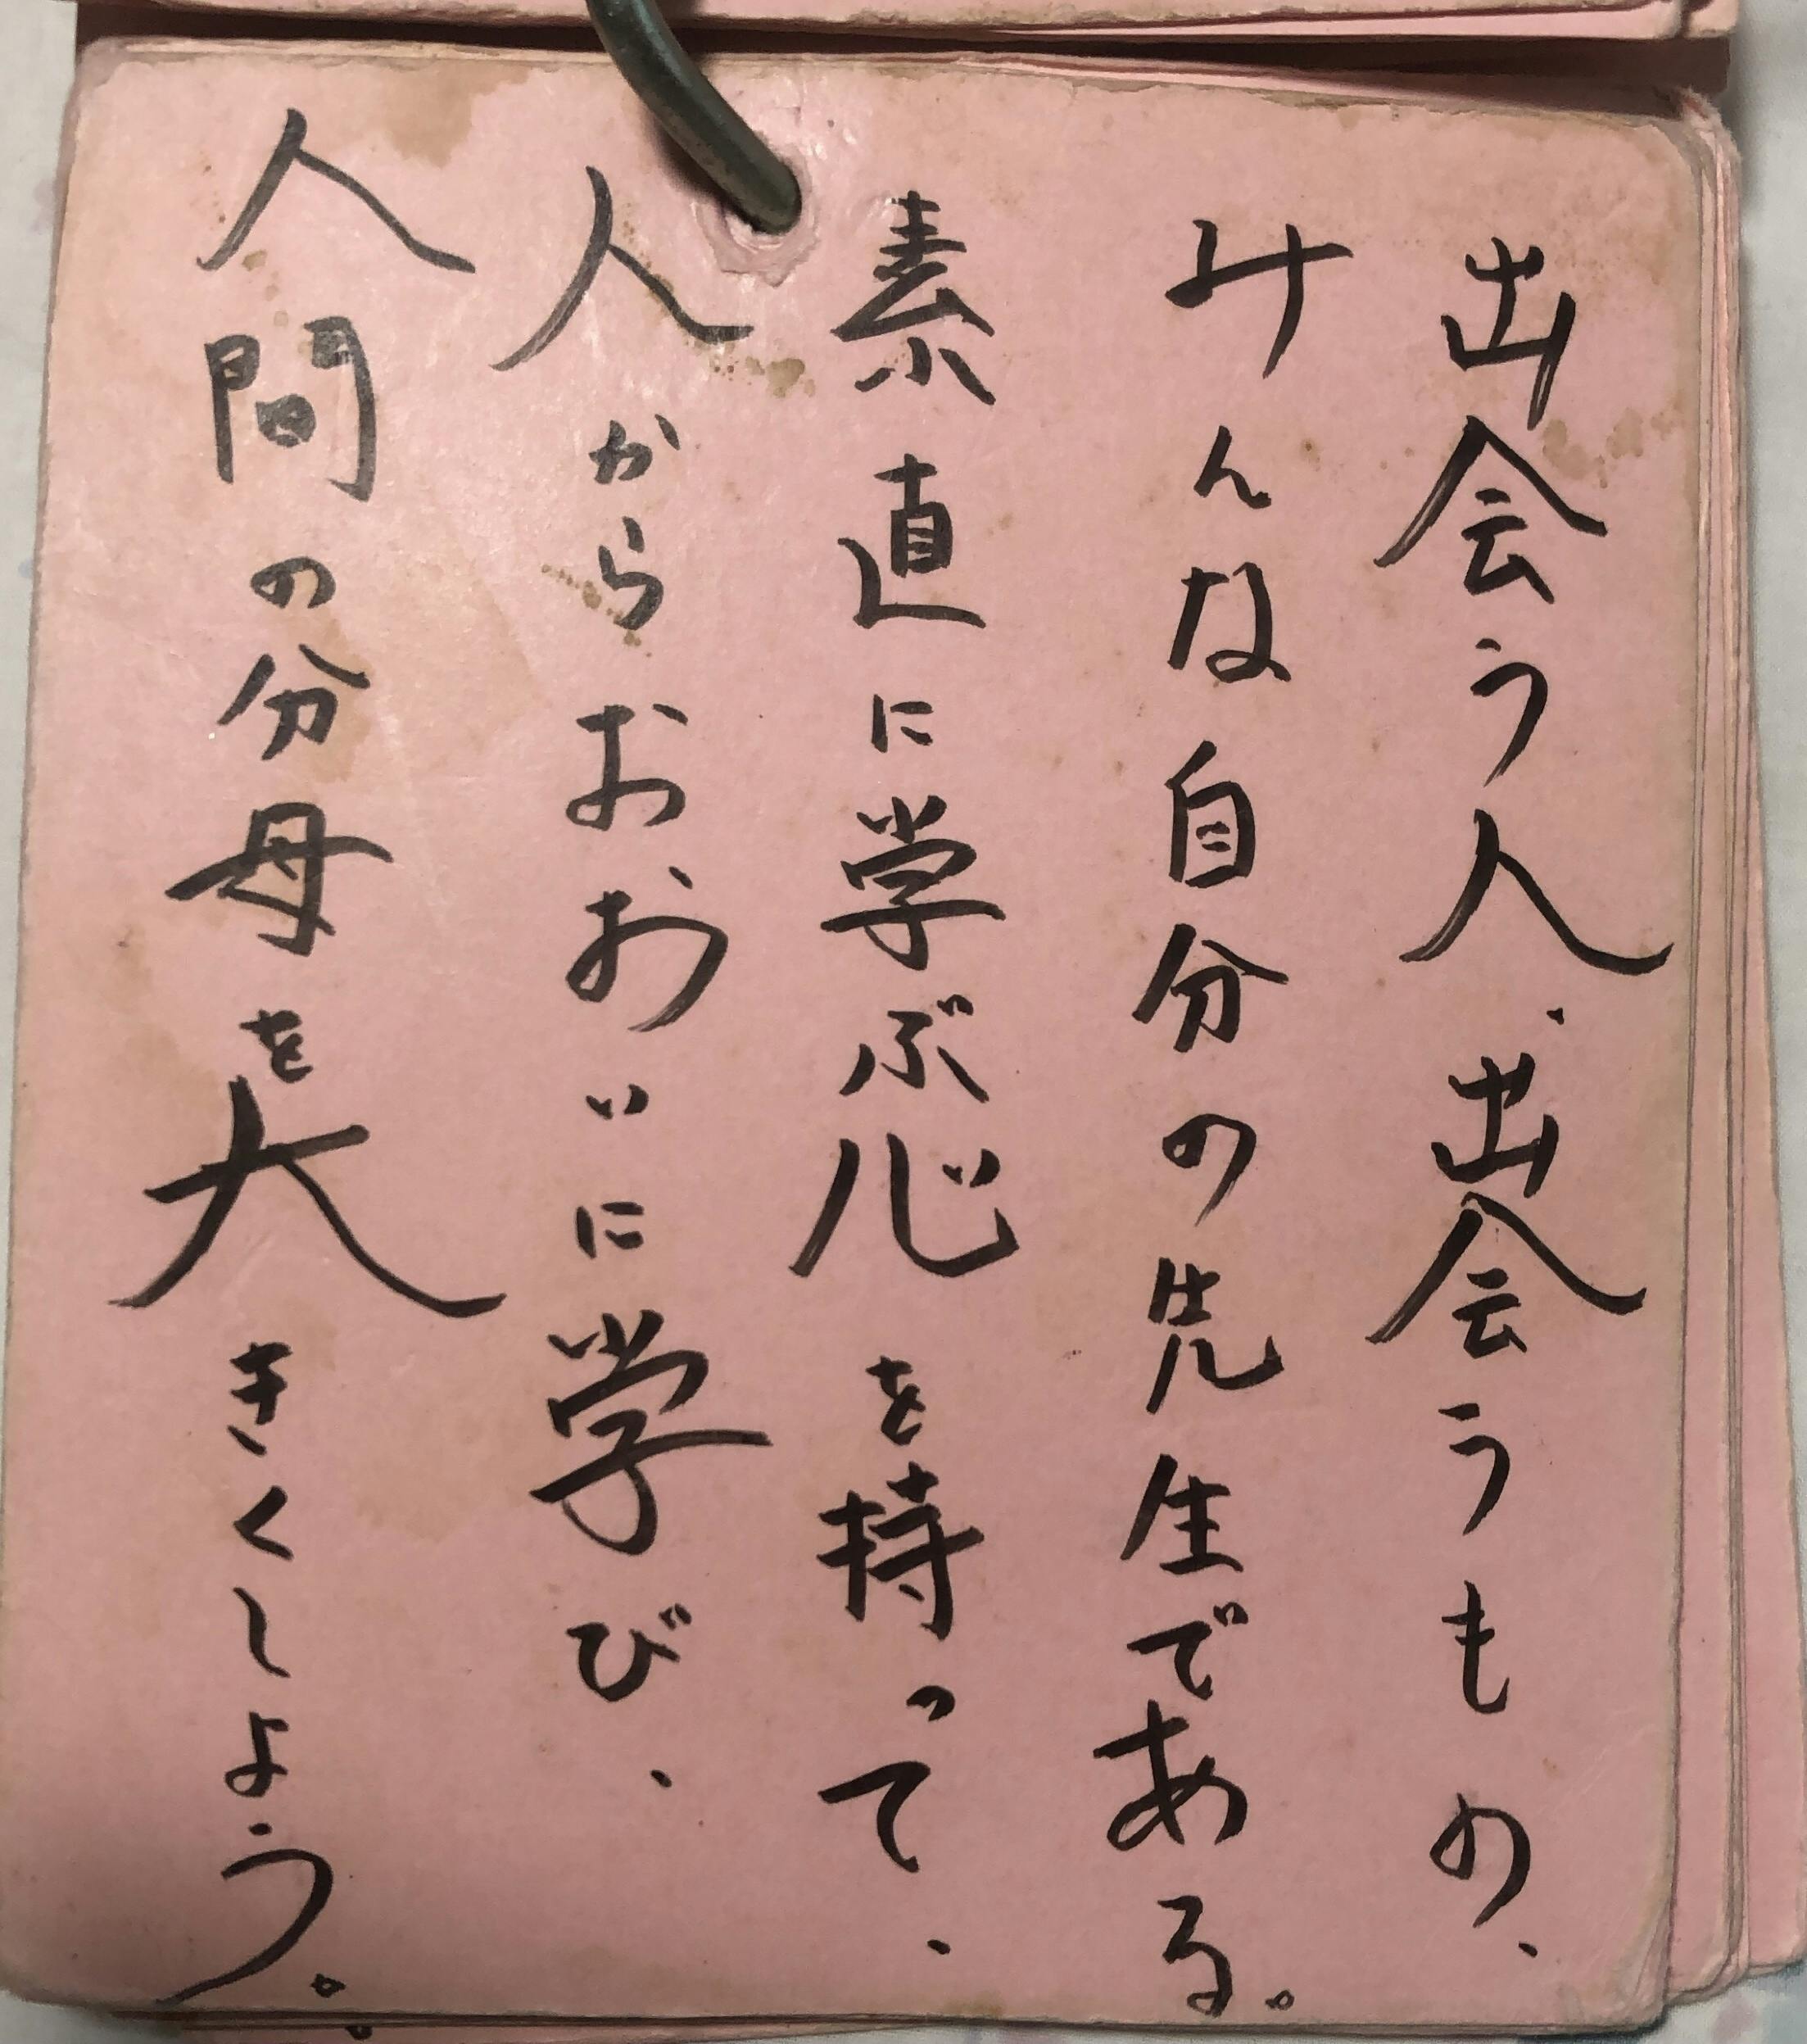 出会う人、出会うもの、
みんな自分の先生である。
素直に学ぶ心を持って、
人からおおいに学び、
人間の分母を大きくしよう。